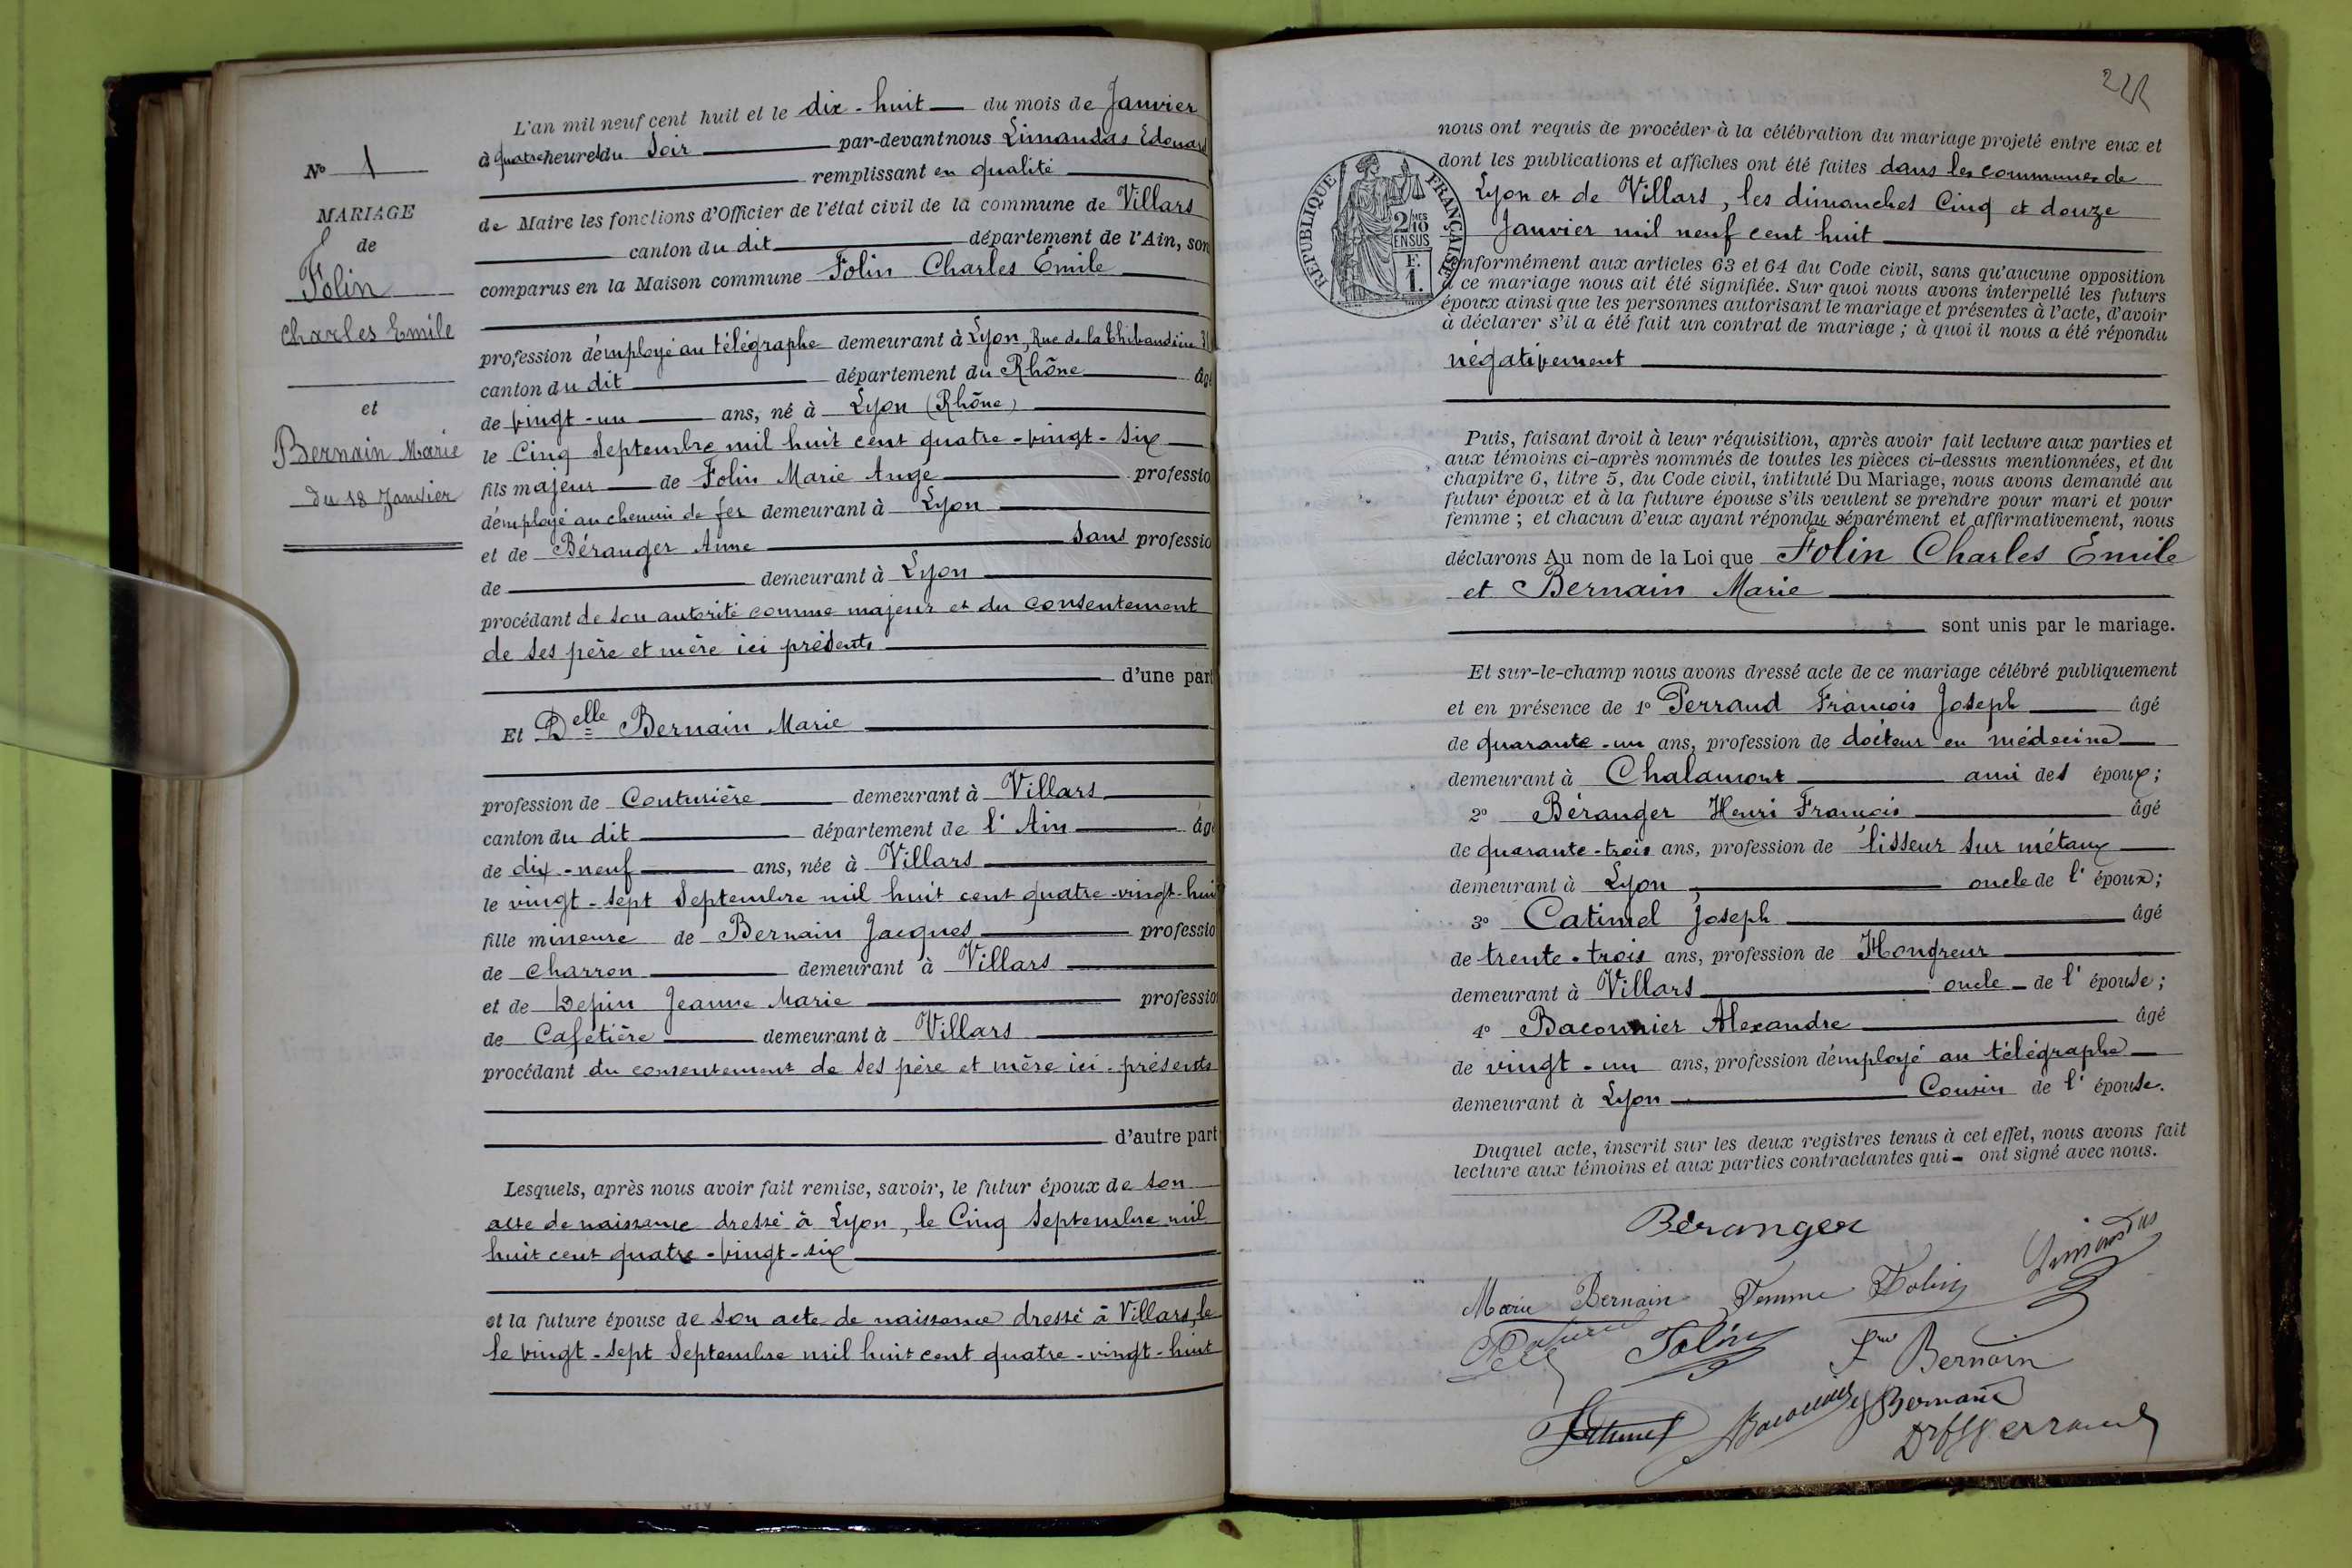 N° 1
MARIAGE
de
Folin
Charles Emile
et
Bernain Marie
du 18 Janvier
L'an mil neuf cent huit et le dix-huit du mois de Janvier
à quatre heures du Soir par-devant nous Limandas Edouard
remplissant en qualité
de Maire les fonctions d'Officier de l'état civil de la commune de Villars
canton du dit département de l'Ain, son
comparus en la Maison commune Folin Charles Émile
profession d'employé au télégraphe demeurant à Lyon, Rue de la Thibaudière
canton du dit département du Rhône âgé
de vingt-un ans, né à Lyon (Rhône)
le Cinq Septembre mil huit cent quatre-vingt-six
fils majeur de Folin Marie Ange professio
d'employé au chemin de fer demeurant à Lyon
et de Béranger Anne sans professio
de demeurant à Lyon
procédant de son autorité comme majeur et du consentement
de ses père et mère ici présents
d'une part
Et Delle Bernain Marie
profession de Couturière demeurant à Villars
canton du dit département de l'Ain âgé
de dix-neuf ans, née à Villars
le vingt-sept Septembre mil huit cent quatre-vingt-huit
fille mineure de Bernain Jacques professio
de charron demeurant à Villars
et de Depin Jeanne Marie professio
de Cafetière demeurant à Villars
procédant du consentement de ses père et mère ici-présents
d'autre part
Lesquels, après nous avoir fait remise, savoir, le futur époux de son
acte de naissance dressé à Lyon, le Cinq Septembre mil
huit cent quatre-vingt-six
et la future épouse de son acte de naissance dressé à Villars, le
le vingt-sept Septembre mil huit cent quatre-vingt-huit
RÉPUBLIQUE FRANÇAISE
2/10 MES
EN SUS
F.
1.
nous ont requis de procéder à la célébration du mariage projeté entre eux et
dont les publications et affiches ont été faites dans les communes de
Lyon et de Villars, les dimanches Cinq et douze
Janvier mil neuf cent huit
onformément aux articles 63 et 64 du Code civil, sans qu'aucune opposition
à ce mariage nous ait été signifiée. Sur quoi nous avons interpellé les futurs
époux ainsi que les personnes autorisant le mariage et présentes à l'acte, d'avoir
à déclarer s'il a été fait un contrat de mariage ; à quoi il nous a été répondu
négativement
Puis, faisant droit à leur réquisition, après avoir fait lecture aux parties et
aux témoins ci-après nommés de toutes les pièces ci-dessus mentionnées, et du
chapitre 6, titre 5, du Code civil, intitulé Du Mariage, nous avons demandé au
futur époux et à la future épouse s'ils veulent se prendre pour mari et pour
femme ; et chacun d'eux ayant répondu séparément et affirmativement, nous
déclarons Au nom de la Loi que Folin Charles Emile
et Bernain Marie
sont unis par le mariage.
Et sur-le-champ nous avons dressé acte de ce mariage célébré publiquement
et en présence de 1° Perraud François Joseph âgé
de quarante-un ans, profession de docteur en médecine
demeurant à Chalamont ami des époux;
2° Béranger Henri François âgé
de quarante-trois ans, profession de lisseur sur métaux
demeurant à Lyon oncle de l'époux;
3° Catimel Joseph âgé
de trente-trois ans, profession de Hongreur
demeurant à Villars oncle de l'épouse;
4° Baconnier Alexandre âgé
de vingt-un ans, profession d'employé au télégraphe
demeurant à Lyon Cousin de l'épouse.
Duquel acte, inscrit sur les deux registres tenus à cet effet, nous avons fait
lecture aux témoins et aux parties contractantes qui ont signé avec nous.
Béranger
Limandas
Marie Bernain Femme Folin
Folin
Bernain
Baconnier
Bernain
Dr Perraud